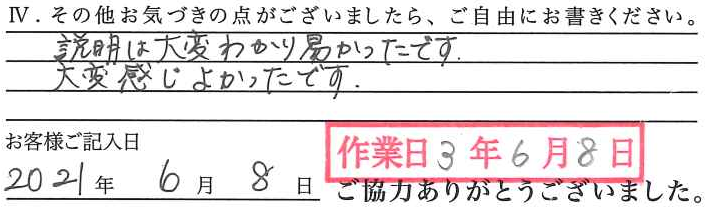 Ⅳ．その他お気づきの点がございましたら、ご自由にお書きください。
説明は大変わかり易かったです.
大変感じよかったです.
お客様ご記入日
作業日3年6月8日
2021年 6月 8日
ご協力ありがとうございました。